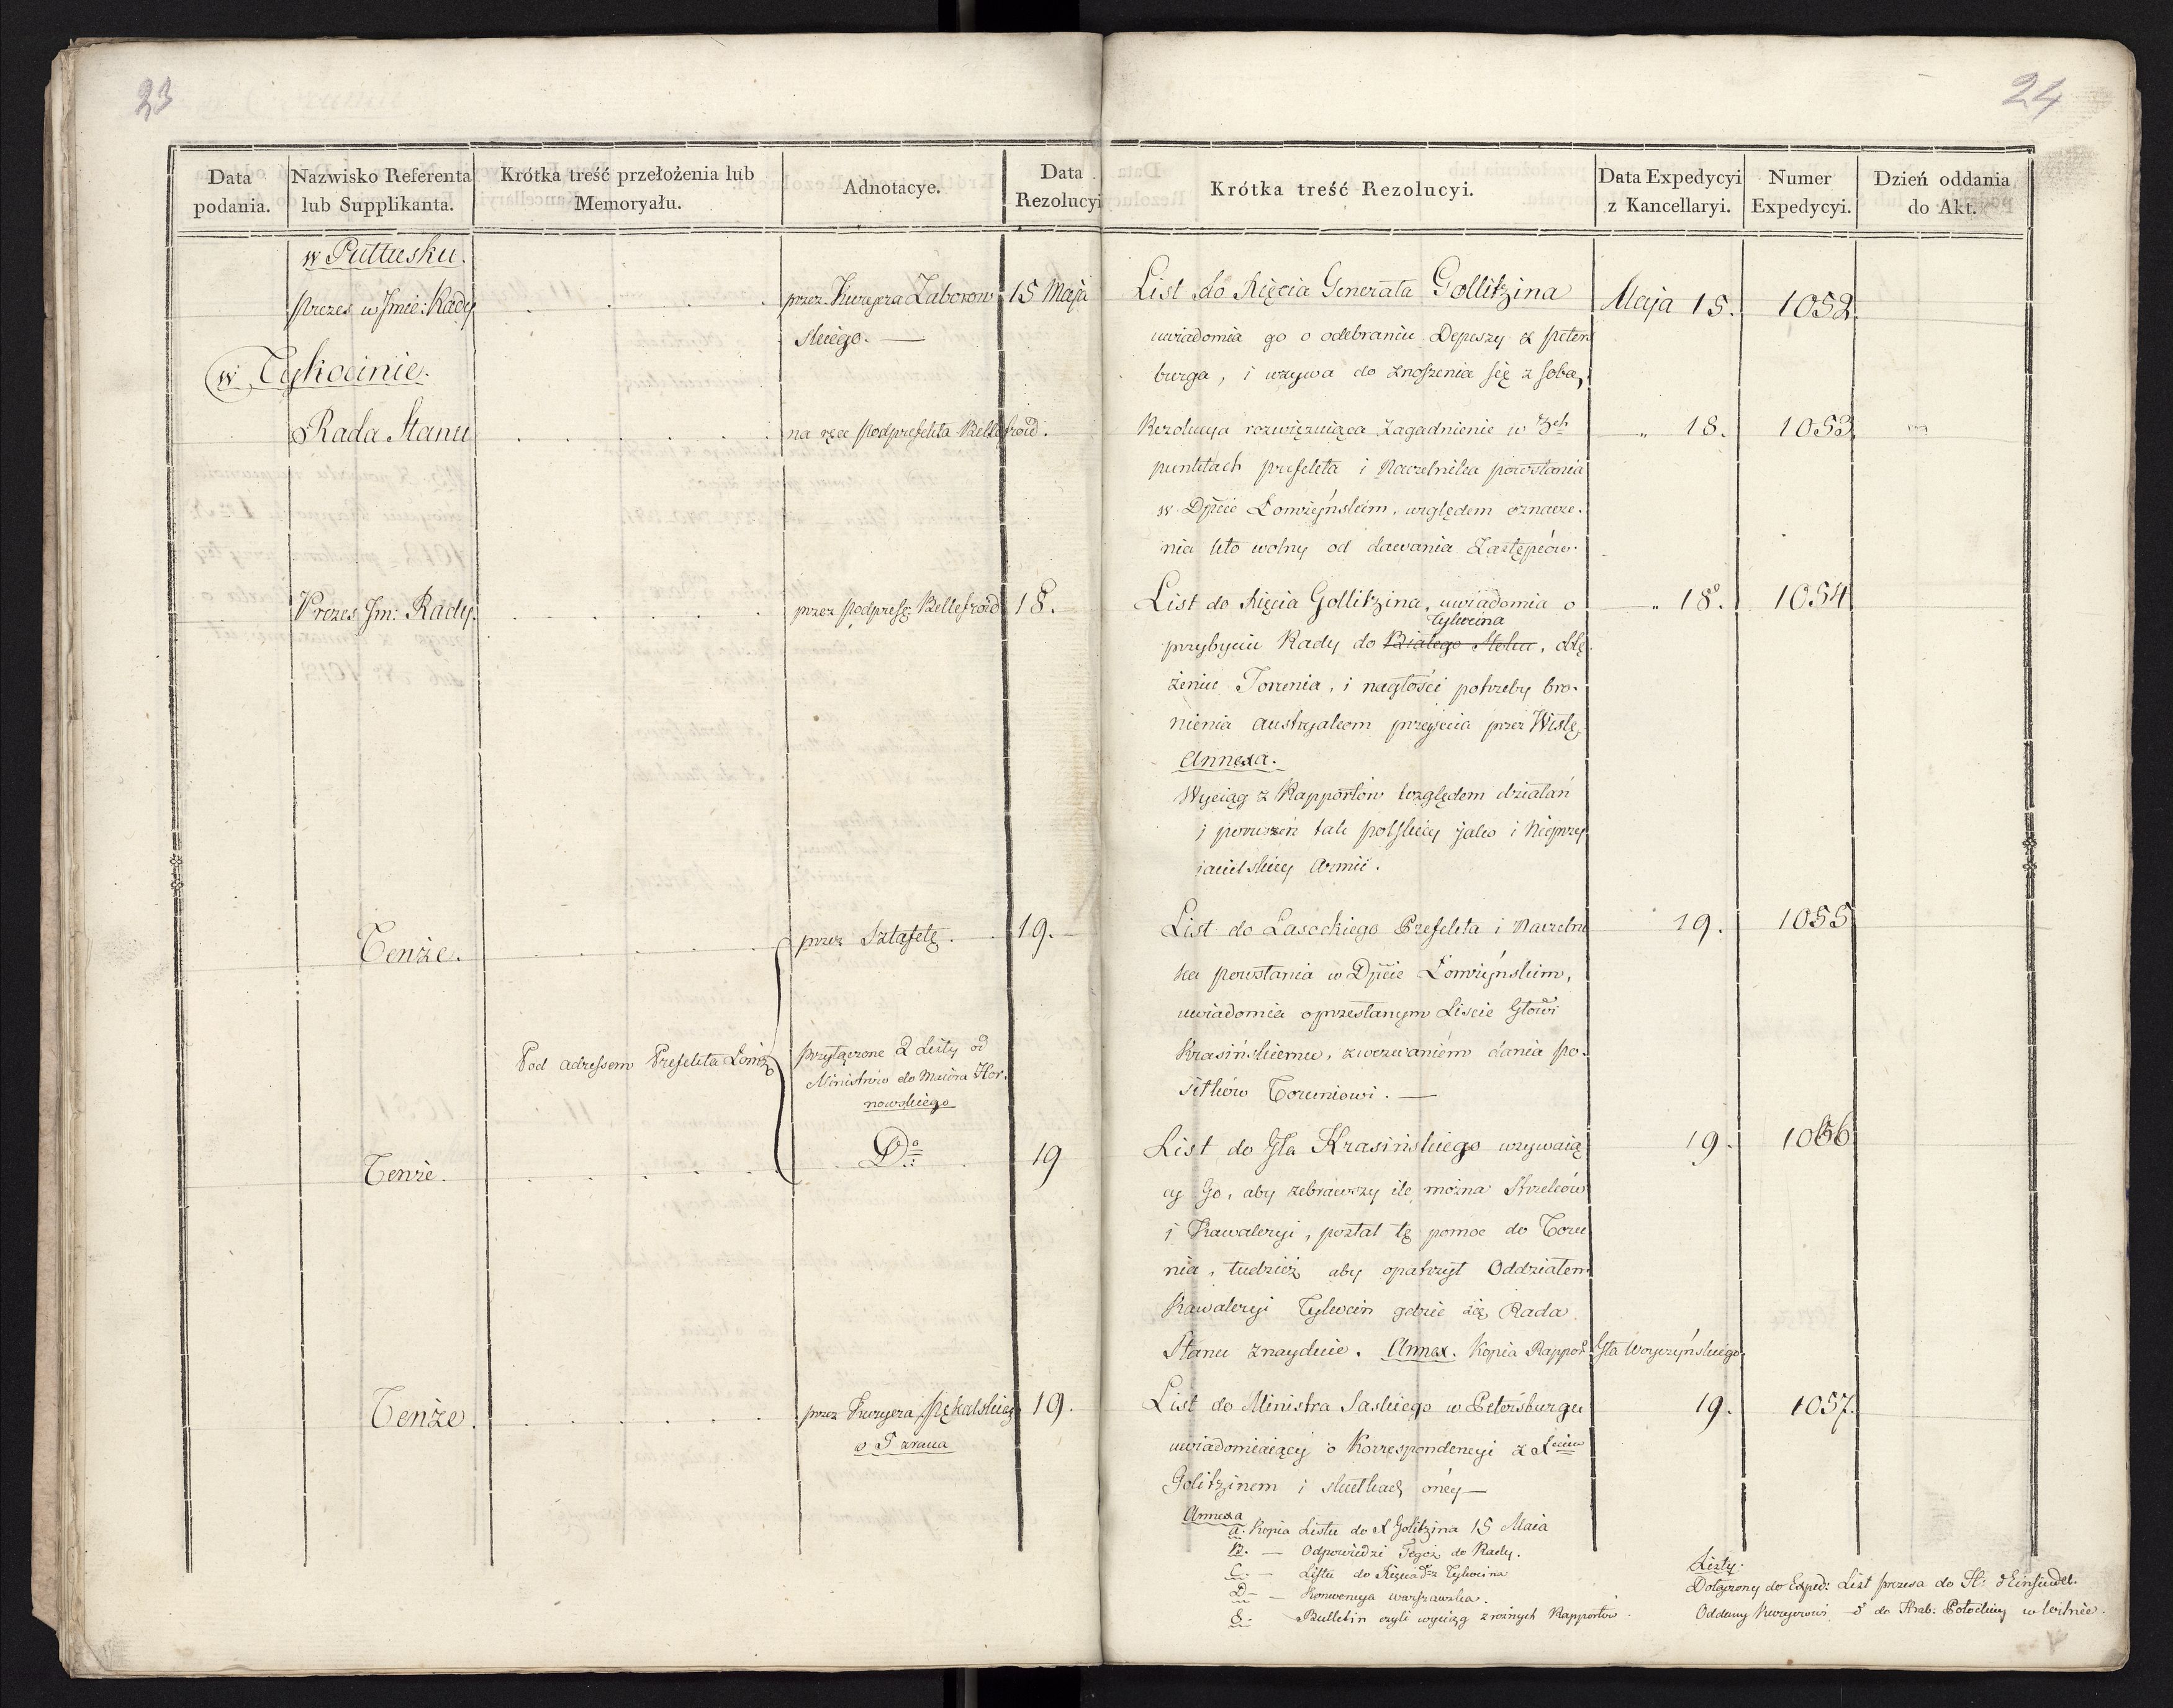 23
24
Data
podania.
Nazwisko Referenta
lub Supplikanta.
Krótka treść przełożenia lub
Memoryału.
Adnotacye.
Data
Rezolucyi
Krótka treść Rezolucyi.
Data Expedycyi
z Kancellaryi.
Numer
Expedycyi.
Dzień oddania
do Akt.
w Pułtusku.
Prezes w Imie: Rady
przez Kuryera Zaborow
skiego. —
15 Maja
List do Xięcia Generała Gollitzina
uwiadomia go o odebraniu Depeszy z Peters
burga, i wzywa do znoszenia się z sobą,
Maja 15.
1052.
w Tykocinie.
Rada Stanu
na ręce Podprefekta Bellefroid.
Rezolucya rozwięzuiąca Zagadnienie w 3ch
punktach prefekta i Naczelnika powstania
w Dpcie Łomżyńskim, względem oznacze-
nia kto wolny od dawania Zastępców.
„ 18.
1053.
Prezes Im: Rady.
przez podpref: Bellefroid
18.
List do Xięcia Gollitzina, uwiadomia o
Tykocina
przybyciu Rady do Białego Stoku, oblę
żeniu Torunia, i nagłości potrzeby bro-
nienia austryakom przeyścia przez Wisłę.
Annexa.
Wyciąg z Rapportów względem działań
i poruszeń tak polskiey jako i Nieprzy
iacielskiey Armii.
„ 18.
1054
Tenże.
przez Sztafetę.
19.
List do Lasockiego Prefekta i Naczelni
ka powstania w Dpcie Łomżyńskim,
uwiadomia o przesłanym Liście Głowi
Krasińskiemu, z wezwaniem dania po-
siłków Toruniowi. —
19.
1055
Pod adressem Prefekta Łomż
przyłączone 2 Listy od
Ministrów do Maiora Hor-
nowskiego
Tenże.
Do
19
List do Gła Krasińskiego wzywaią
cy Go, aby zebrawszy ile można Strzelców
i Kawaleryi, posłał tę pomoc do Toru
nia, tudzież aby opatrzył Oddziałem
Kawaleryi Tykocin gdzie się Rada
Stanu znayduie. Annex. Kopia Rapport Gła Woyczyńskiego.
19.
1056
Tenże.
przez Kuryera Pękalskieg
o 5 zrana
19.
List do Ministra Saskiego w Petersburgu
uwiadomiaiący o Korrespondencyi z Xciem
Golitzinem i skutkach oney —
19.
1057.
Annexa
a. Kopia Listu do X Golitzina 15 Maia
B. — Odpowiedzi Tegoż do Rady.
C. — Listu do Xięcia z Tykocina
D — Konwencya warszawska.
E. Bulletin czyli wyciąg z rożnych Rapportów.
Listy.
Dołączony do Exped: List prezesa do H: d'Einsiedel.
Oddany Kuryerowi do Hrab: Potockiey w Wilnie.